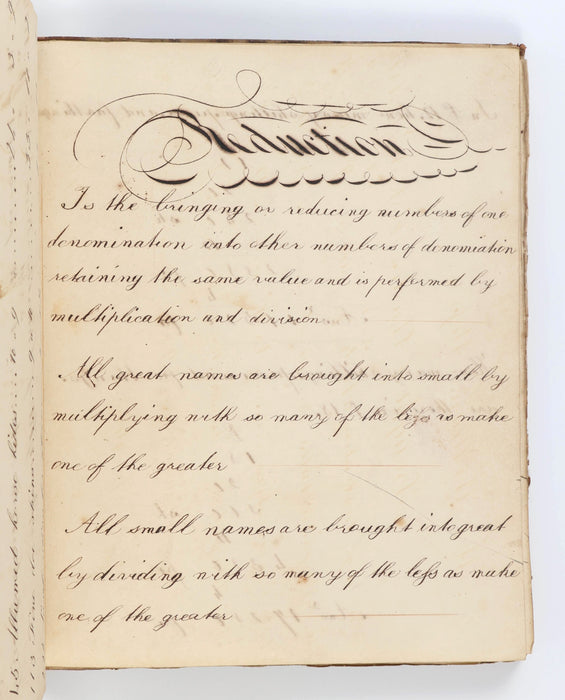 Reduction
Is the bringing or reducing numbers of one
denomination into other numbers of denomiation
retaining the same value and is performed by
multiplication and division
All great names are brought into small by
multiplying with so many of the as make
one of the greater
All small names are brought into great
by dividing with so many of the leſs as make
one of the greater